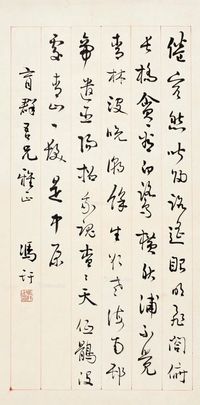 倦客愁聞歸路遙眼明飛閣俯
長橋貪看白鷺橫秋浦不覺
青林没晚潮餘生欲老海南邨
帝遣巫陽招我魂杳杳天低鶻没
處青山一髮是中原
育群吾兄雅正 馮